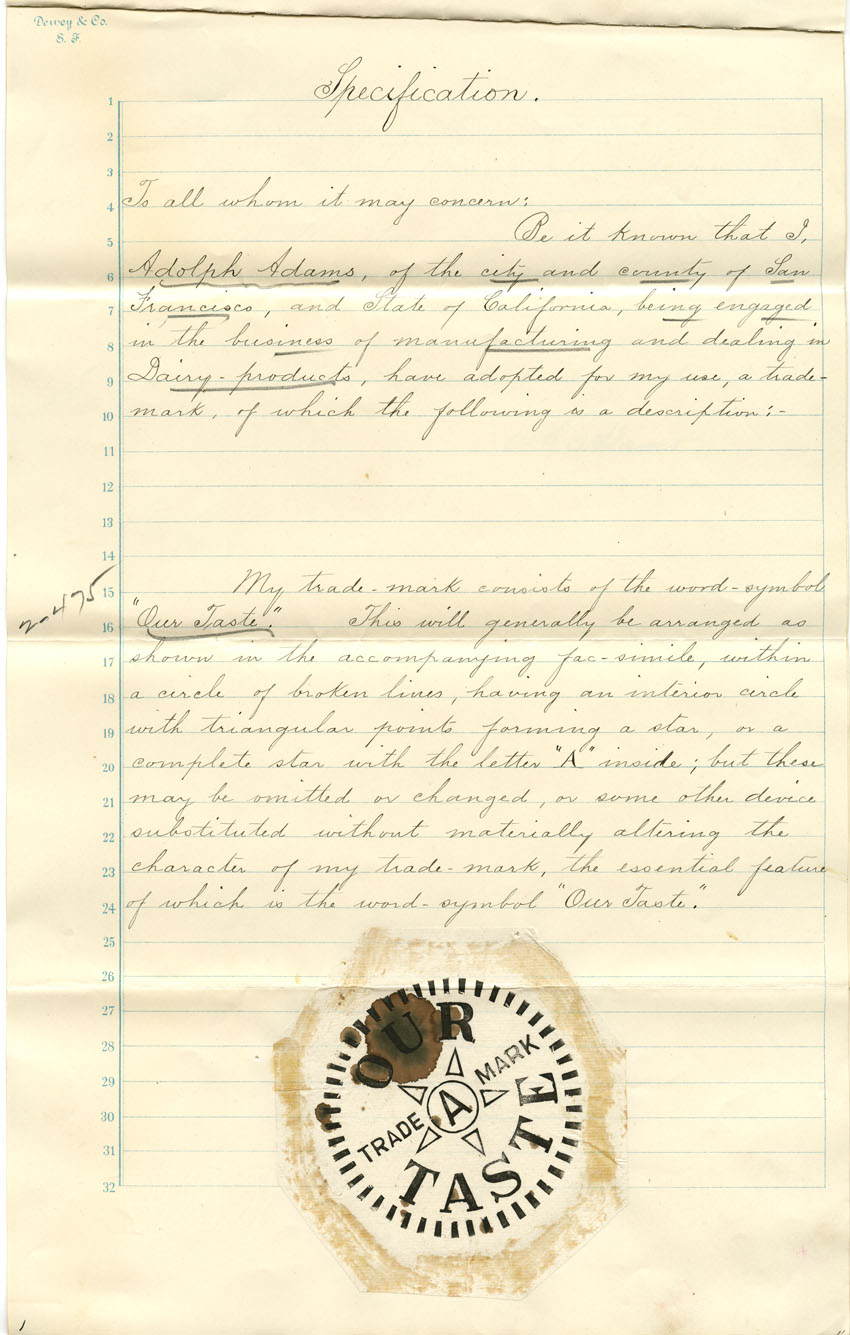 Dewey & Co.
S. F.
Specification.
1
2
3
4 To all whom it may concern:
5 Be it known that I,
6 Adolph Adams, of the city and county of San
7 Francisco, and State of California, being engaged
8 in the business of manufacturing and dealing in
9 Dairy-products, have adopted for my use, a trade-
10 mark, of which the following is a description:-
11
12
13
14
2-475
15 My trade-mark consists of the word-symbol
16 "Our Taste." This will generally be arranged as
17 shown in the accompanying fac-simile, within
18 a circle of broken lines, having an interior circle
19 with triangular points forming a star, or a
20 complete star with the letter "A" inside; but these
21 may be omitted or changed, or some other device
22 substituted without materially altering the
23 character of my trade-mark, the essential feature
24 of which is the word-symbol "Our Taste."
25
26
27
28
29
30
31
32
OUR
TRADE A MARK
TASTE